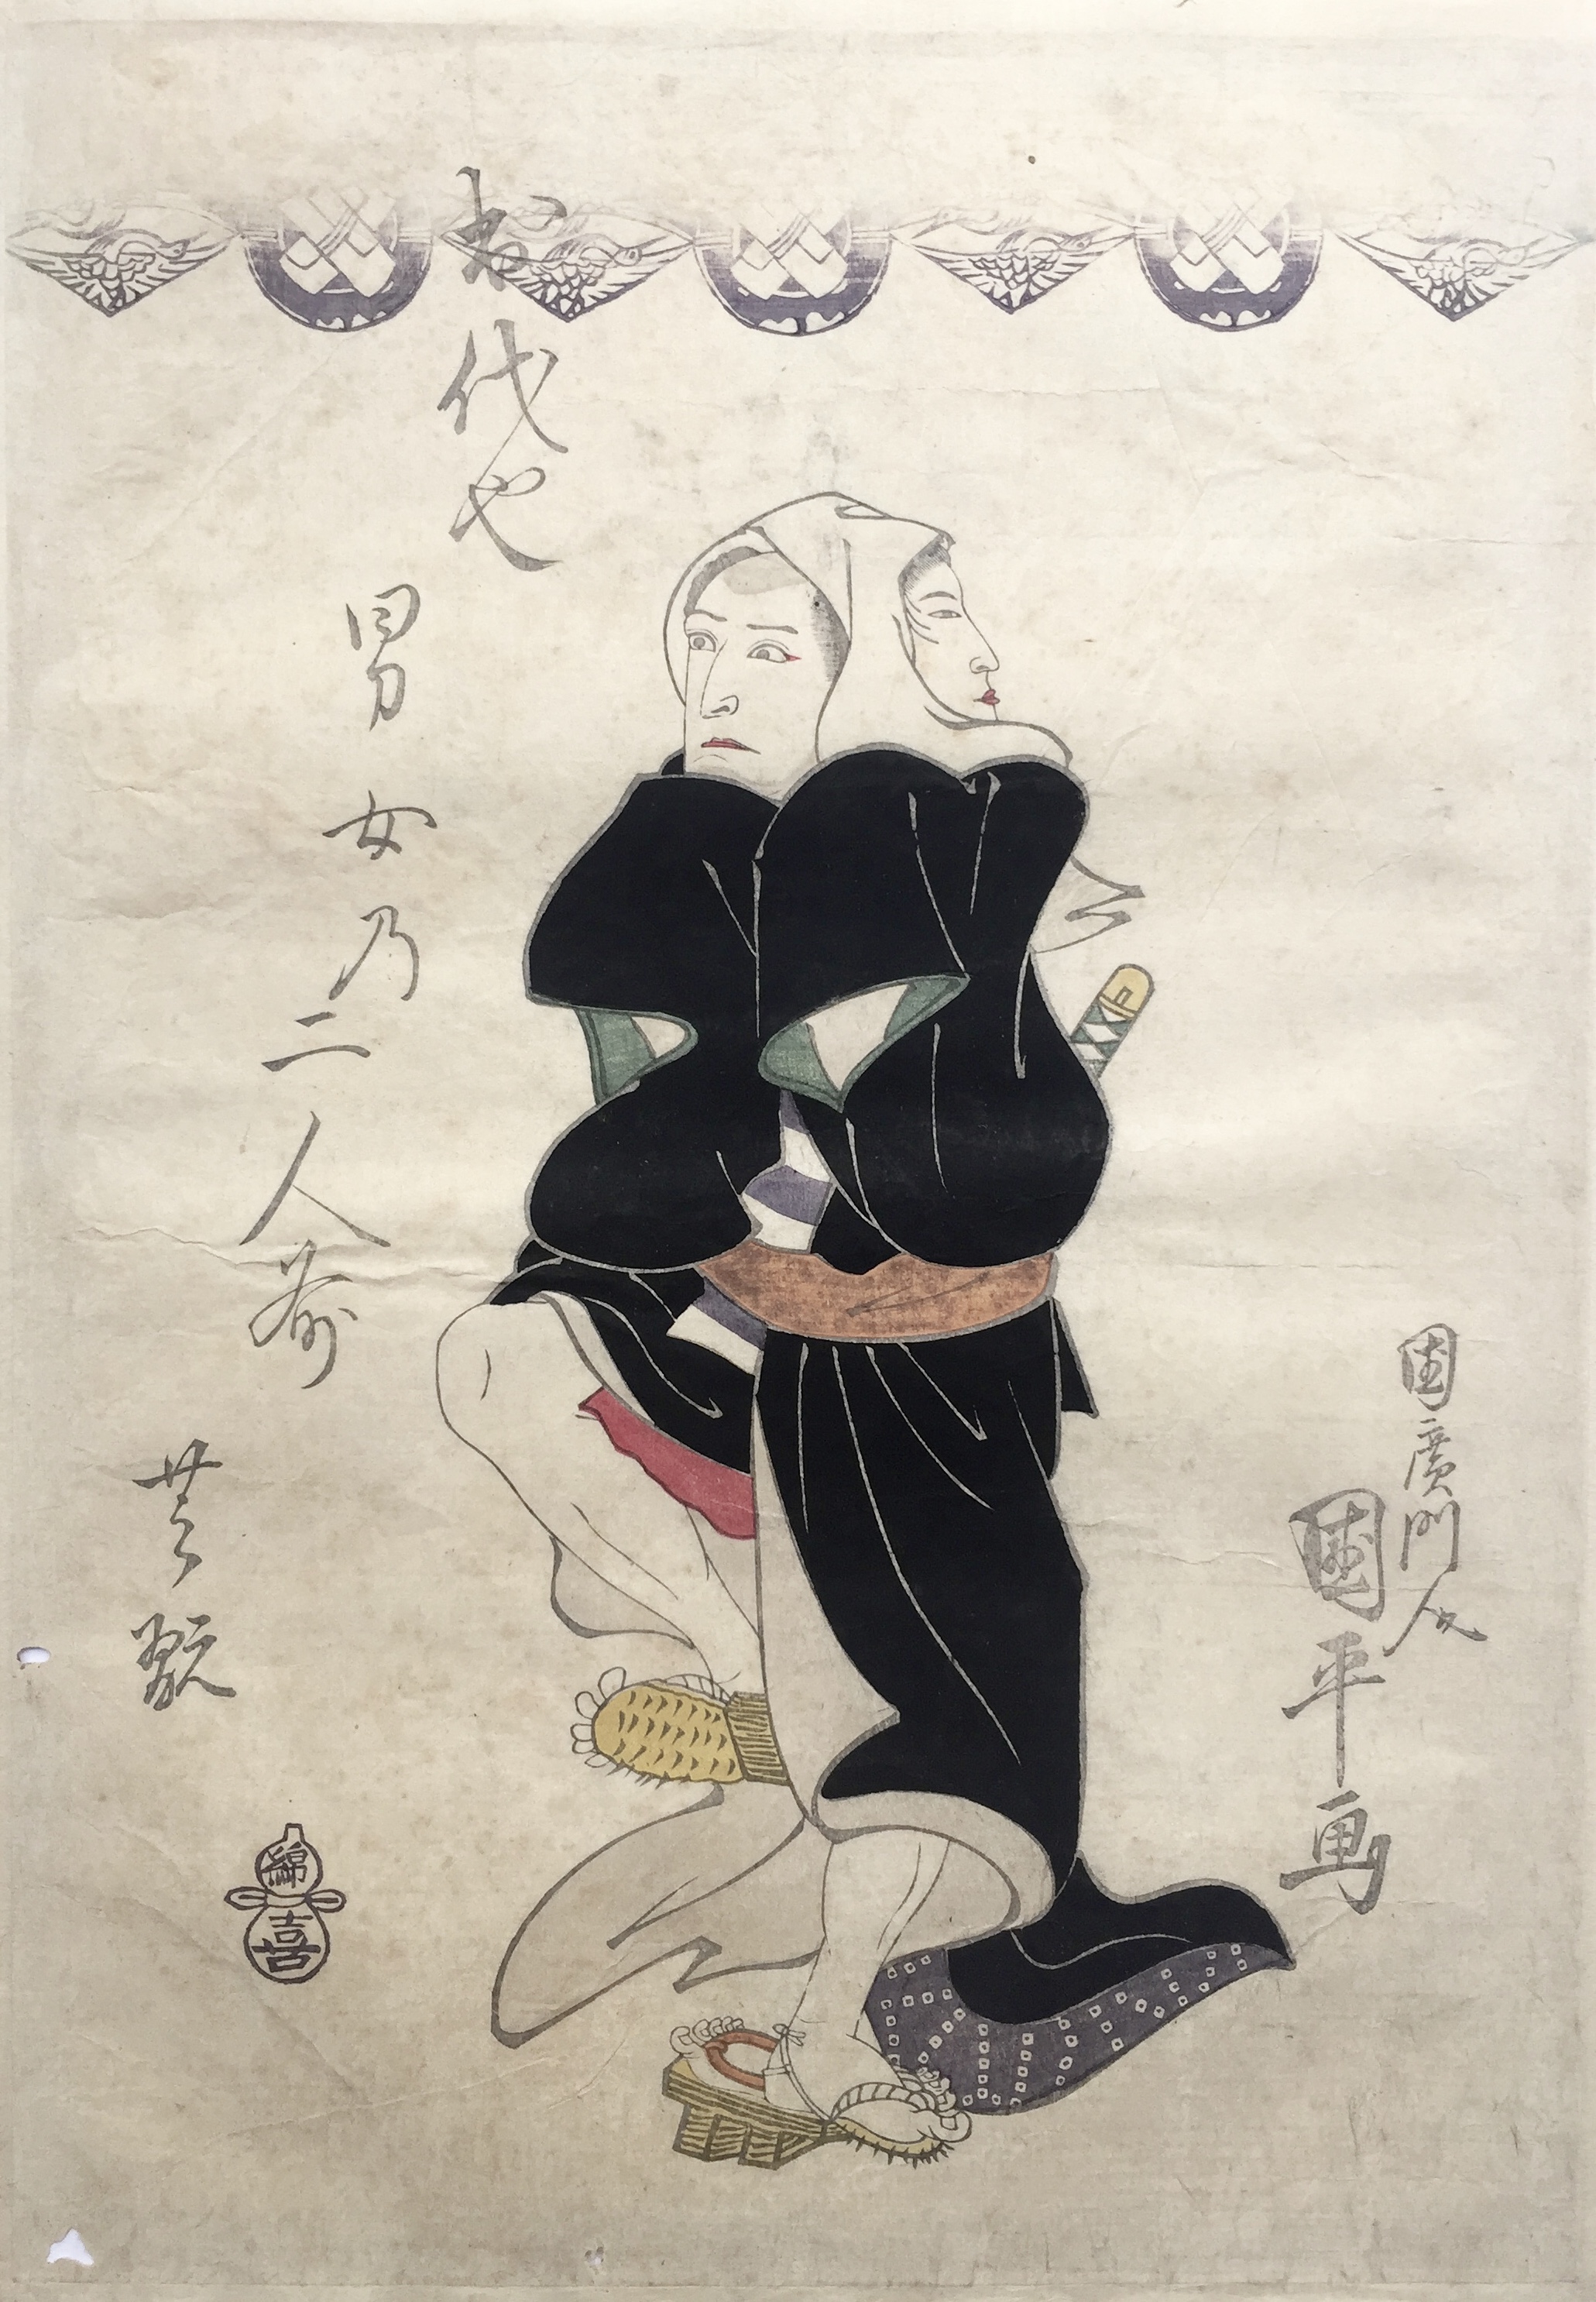 国廣門人
國平画
お代や
男女乃二人前
芝翫
綿喜